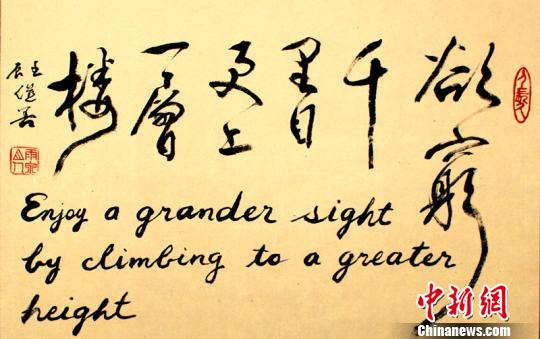 欲窮
千
里目
更上
一層
楼
Enjoy a grander sight
by climbing to a greater
height
中新网
Chinanews.com